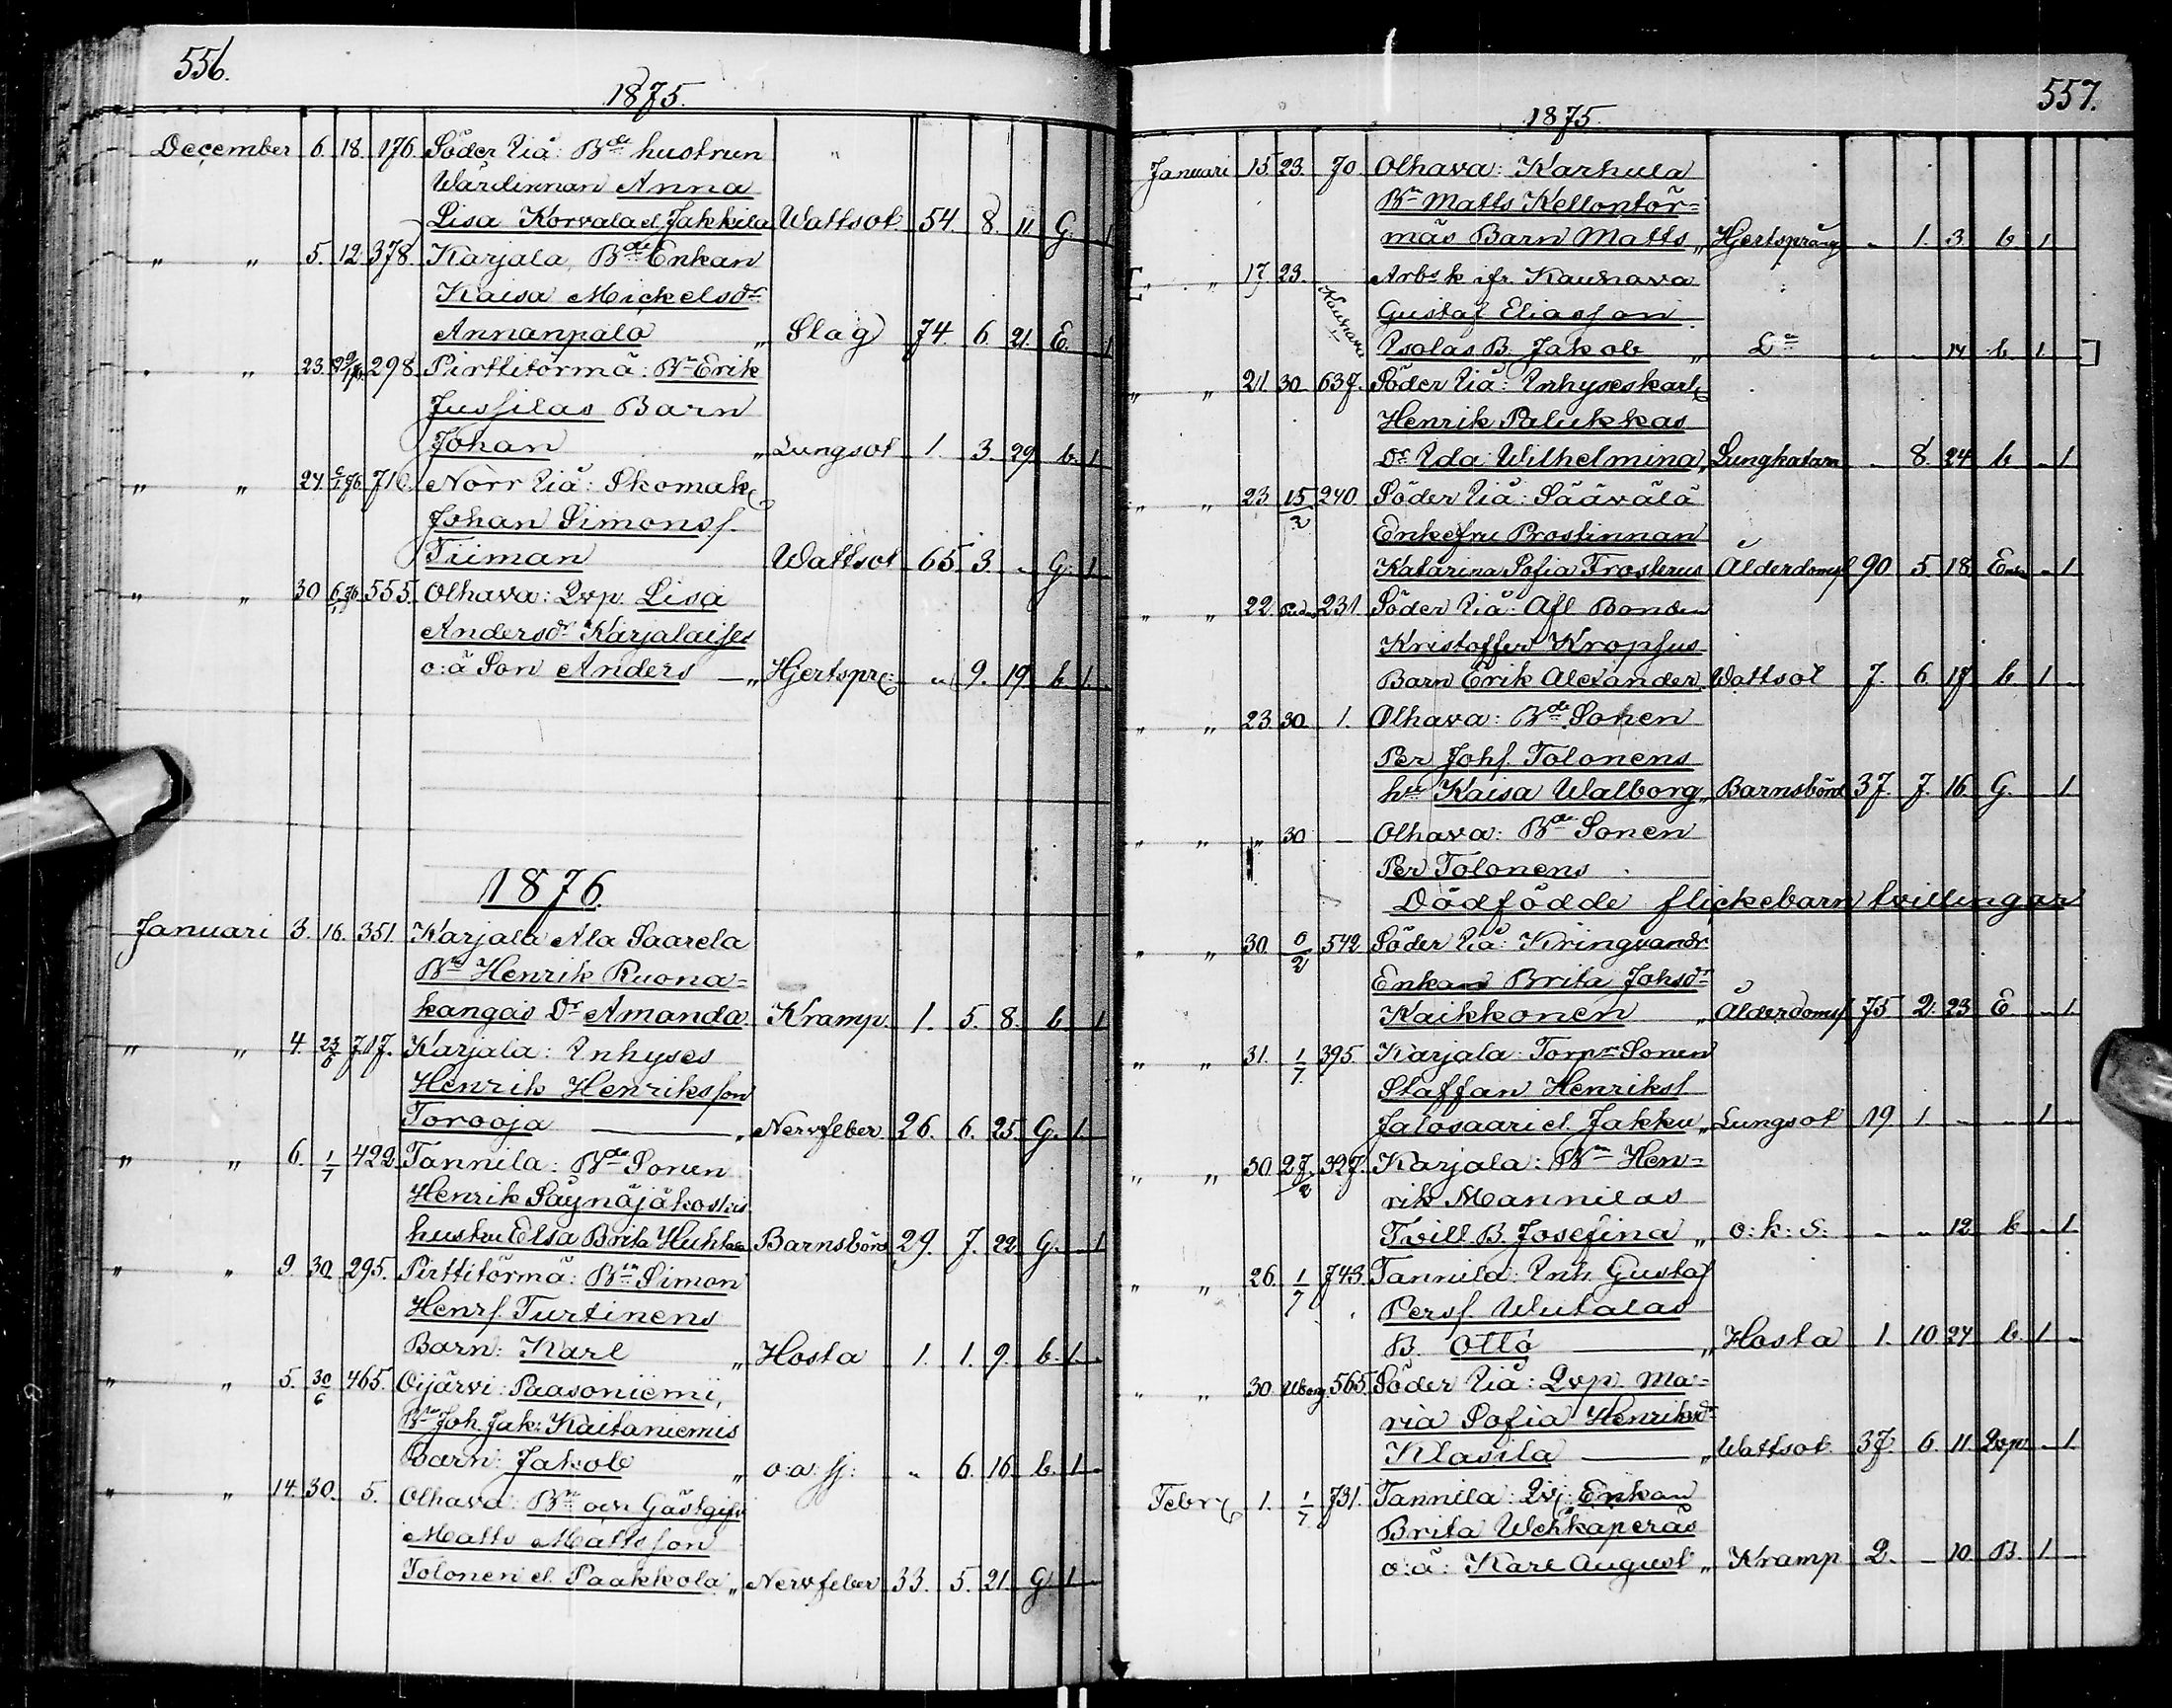 556.
1875.
December 6. 18. 176. Söder Iiå: Bde hustrun
Wärdinnan Anna
Lisa Korvala el. Jakkila Wattsot 54. 8. 11 G. 1
" " 5. 12. 378. Karjala, Bde Enkan
Kaisa Mickelsdr
Annanpalo " Slag 74. 6. 21. E. 1
" " 23. 298. Pirttitörmä: Bn Erik
Jussilas Barn
Johan " Lungsot 1. 3. 29. b. 1
" " 24. 716. Norr Iiå: Skomak
Johan Simonss.
Tiiman Wattsot 65. 3. - G. 1.
" " 30 6/1 76 555. Olhava: Qvp. Lisa
Andersdr Karjalaises
o:ä Son Anders — " Hjertspr: " 9. 19. b. 1.
1876.
Januari 3. 16. 351. Karjala Ala Saarela
Bn Henrik Ruona=
kangas Dr Amanda Kramp. 1. 5. 8. b. 1
" " 4. 23/6 717. Karjala: Inhyses
Henrik Henriksson
Torooja — " Nervfeber 26. 6. 25. G. 1.
" " 6. 1/7 422. Tannila: Bde Sonen
Henrik Säynäjäkoskis
hustru Elsa Brita Huhta Barnsbörd 29. 7. 22 G. - 1
" " 9. 30. 295. Pirttitörmä: Bn Simon
Henrs. Turtinens
Barn: Karl " Hosta 1. 1. 9. b. 1.
" " 5. 30/6 465. Oijärvi: Paasoniemi,
Bn Joh. Jak: Kaitaniemis
Barn: Jakob " o:a: sj: " 6. 16. b. 1
" " 14. 30. 5. Olhava: Bn och Gästgifv
Matts Mattsson
Tolonen el. Paakkola " Nervfeber 33. 5. 21. G. 1.
557.
1875.
Januari 15. 23. 70 Olhava: Karhula
Bn Matts Kellontör=
mäs Barn Matts " Hjertspräng - 1. 3. b. 1
" " 17. 23. Kauhava Arbsk ifr. Kauhava
Gustaf Eliasson
Isolas B. Jakob " Do - - 14 b. 1.
" " 21 30. 637. Söder Iiå: Inhyseskarl
Henrik Palukkas
Dr Ida Wilhelmina " Lungkatarr - 8. 24 b - 1
" " 23. 15/2 240. Söder Iiå: Säävälä
Enkefru Prostinnan
Katarina Sofia Frosterus Ålderdomsf 90 5. 18. Enka - 1
" " 22. 231. Söder Iiå: Afl Bonden
Kristoffer Kropsus
Barn Erik Alexander Wattsot 7. 6. 17 b. 1 -
" " 23. 30. 1. Olhava: Bde Sonen
Per Johs. Tolonens
hu Kaisa Walborg " Barnsbörd 37. 7. 16. G. - 1
" " " 30 — Olhava: Bde Sonen
Per Tolonens
Dödfödde flickebarn tvillingar
" " 30. 6/2 542 Söder Iiå: Kringvandr.
Enkan Brita Johsdr
Kaikkonen " Ålderdomsf 75 2. 23 E - 1.
" " 31. 1/7 395. Karjala: Torpr Sonen
Staffan Henrikss
Jalosaari el. Jakku " Lungsot 19. 1 - - 1 -
" " 30. 27/2 327. Karjala: Bn Hen=
rik Mannilas
Tvill. B. Josefina " o: k: s: - - 12. b. - 1
" " 26. 1/7 743. Tannila: Inh. Gustaf
Perss. Wutalas
B. Otto — " Hosta 1. 10. 24 b. 1. -
" " 30 Uborg 565. Söder Iiå: Qvp. Ma=
ria Sofia Henriksdr
Klasila — " Wattsot 37. 6. 11 Qvp. - 1
Febr 1. 1/7 731. Tannila: Qvj: Enkan
Brita Wehkaperäs
o:ä: Karl August " Kramp 2. - 10. B. 1. -